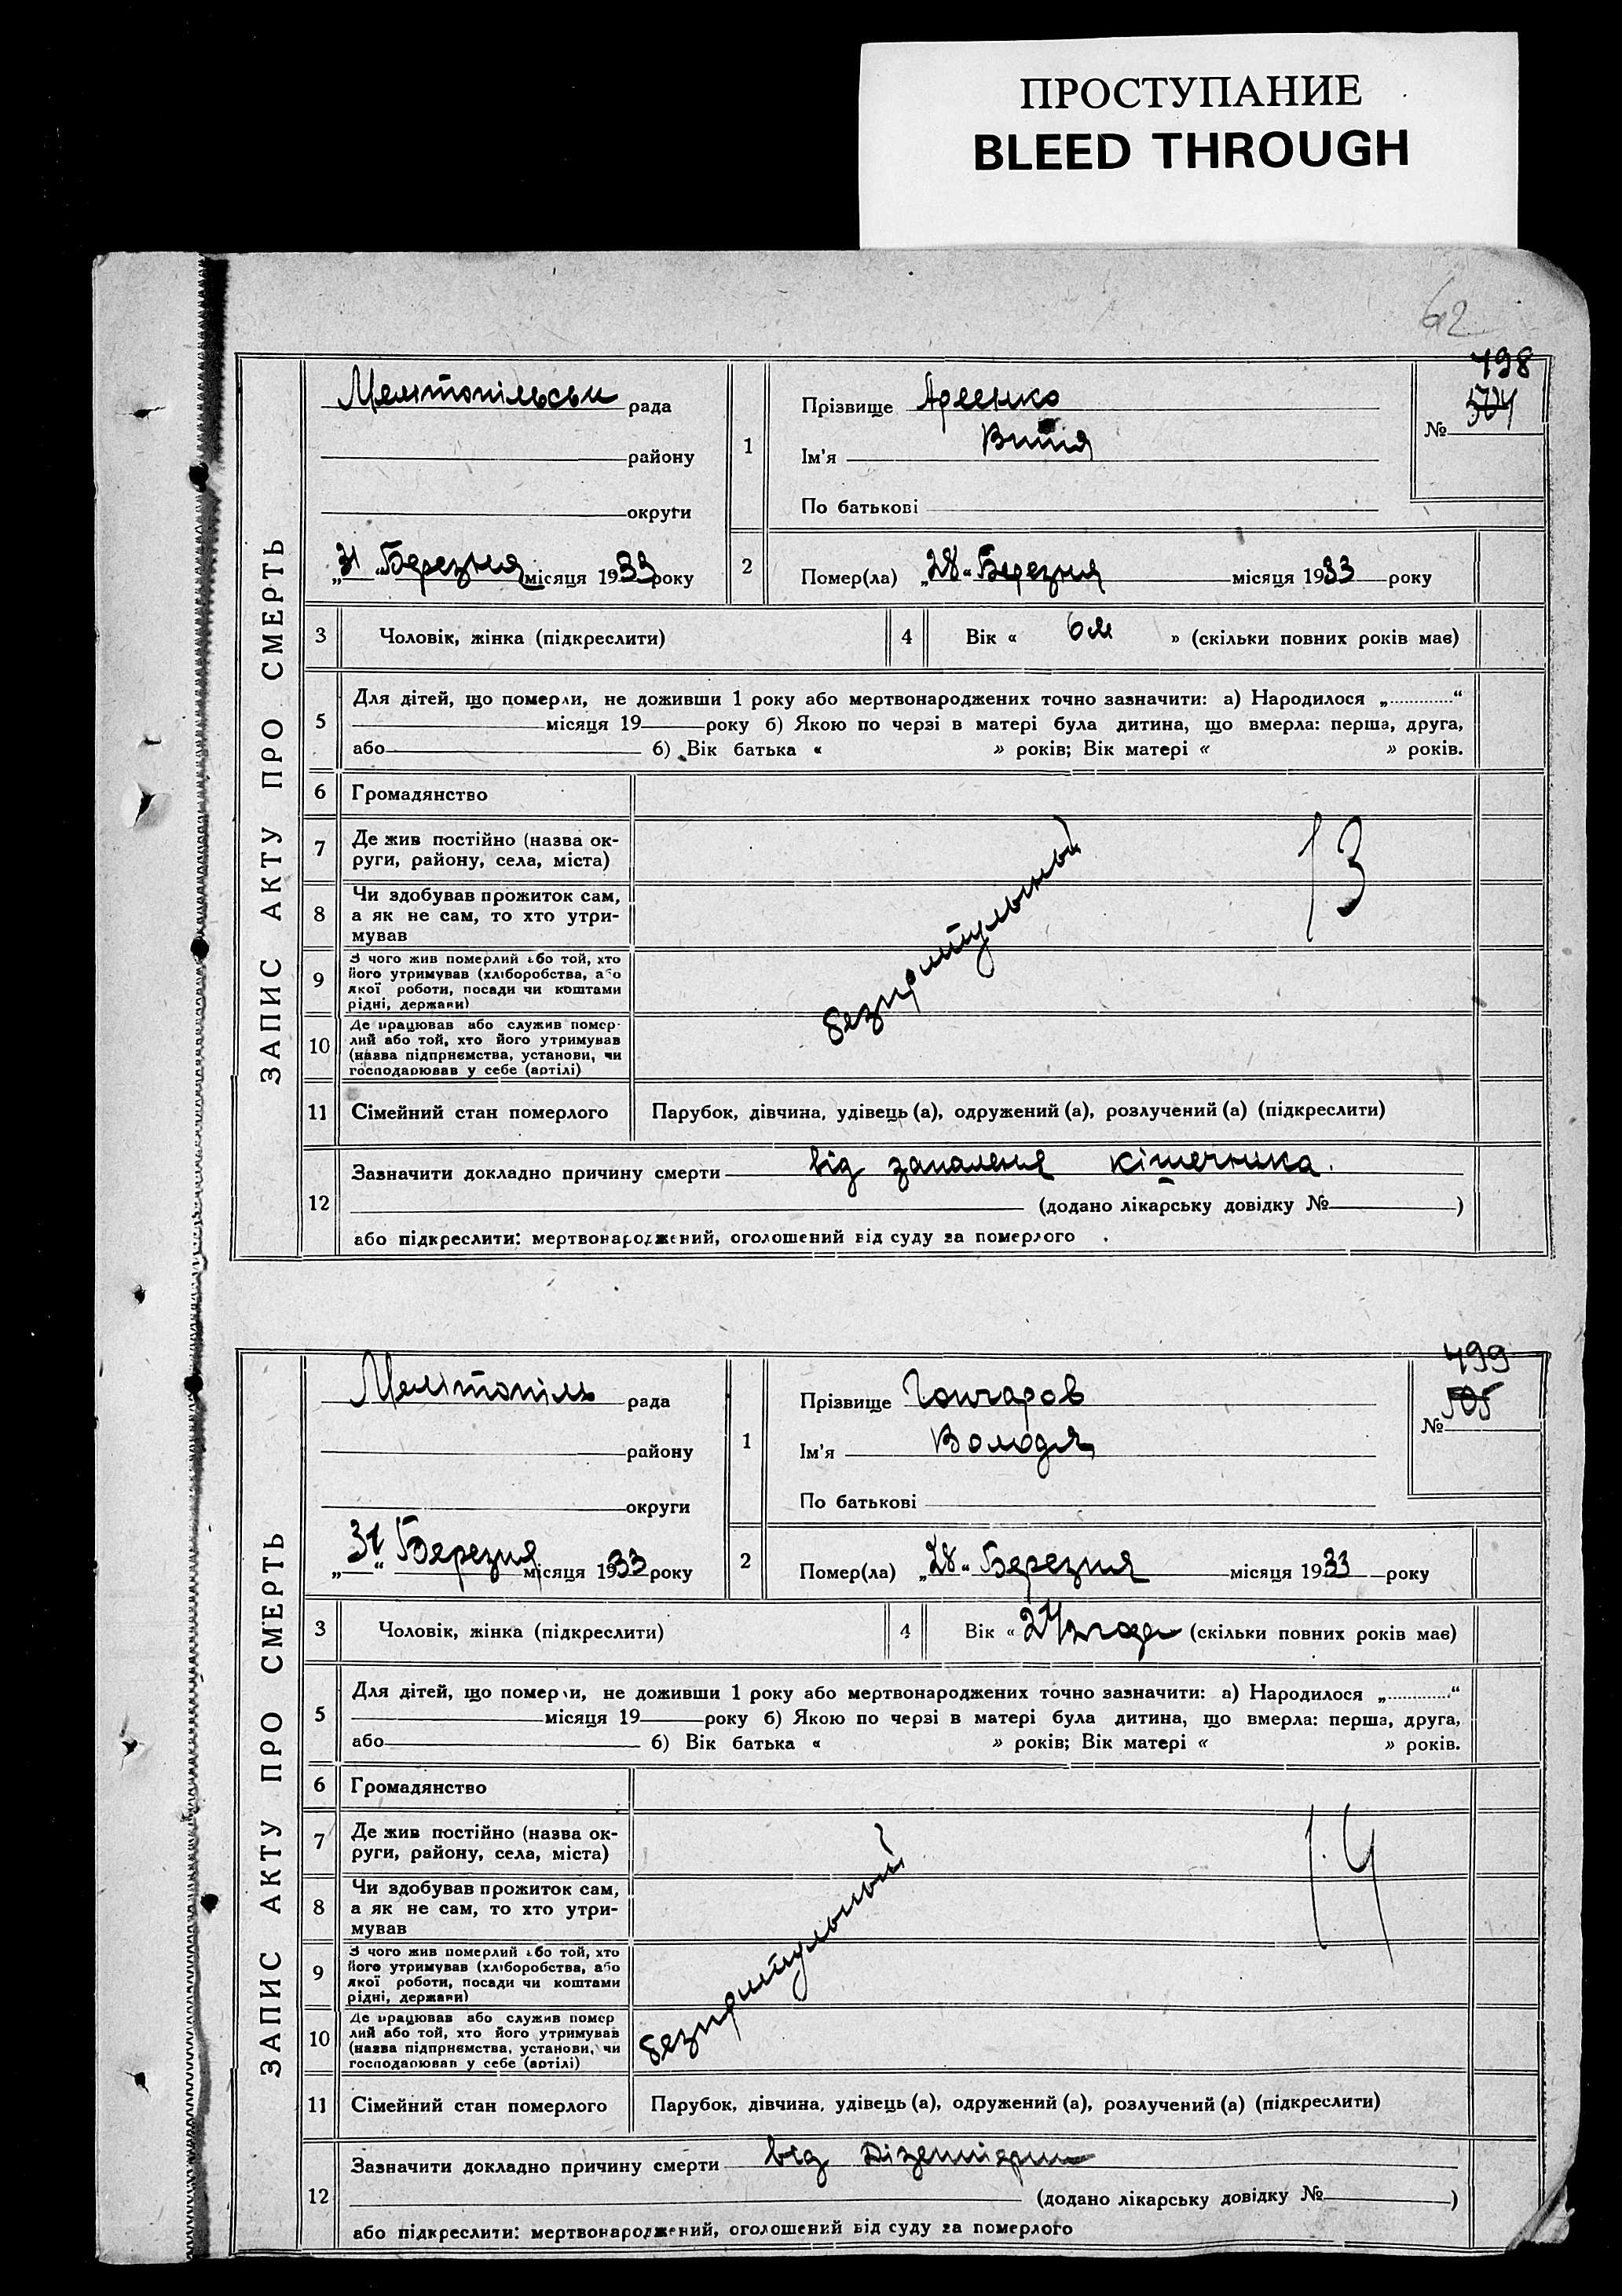 ПРОСТУПАНИЕ
BLEED THROUGH
62
ЗАПИС АКТУ ПРО СМЕРТЬ
Мелітопільськ рада
району
округи
„31“ Березня місяця 1933 року
1
Прізвище
Ім'я Витя
По батькові
498
504
№
2
Помер(ла) „28“ Березня місяця 1933 року
3 Чоловік, жінка (підкреслити)
4 Вік « 6 м » (скільки повних років має)
5
Для дітей, що померли, не доживши 1 року або мертвонароджених точно зазначити: а) Народилося „.............“
місяця 19 року б) Якою по черзі в матері була дитина, що вмерла: перша, друга,
або б) Вік батька « » років; Вік матері « » років.
6 Громадянство
7 Де жив постійно (назва ок-
руги, району, села, міста)
8 Чи здобував прожиток сам,
а як не сам, то хто утри-
мував
9 З чого жив померлий або той, хто
його утримував (хліборобства, або
якої роботи, посади чи коштами
рідні, держави)
10 Де працював або служив помер-
лий або той, хто його утримував
(назва підприємства, установи, чи
господарював у себе (артілі)
безпритульный
13
11 Сімейний стан померлого Парубок, дівчина, удівець (а), одружений (а), розлучений (а) (підкреслити)
12
Зазначити докладно причину смерти від запаленя кішечника.
(додано лікарську довідку № )
або підкреслити: мертвонароджений, оголошений від суду за померлого
ЗАПИС АКТУ ПРО СМЕРТЬ
Мелітопіль рада
району
округи
„31“ Березня місяця 1933 року
1
Прізвище Гончаров
Ім'я Володя
По батькові
499
505
№
2
Помер(ла) „28“ Березня місяця 1933 року
3 Чоловік, жінка (підкреслити)
4 Вік « 2 1/2 года (скільки повних років має)
5
Для дітей, що померли, не доживши 1 року або мертвонароджених точно зазначити: а) Народилося „.............“
місяця 19 року б) Якою по черзі в матері була дитина, що вмерла: перша, друга,
або б) Вік батька « » років; Вік матері « » років.
6 Громадянство
7 Де жив постійно (назва ок-
руги, району, села, міста)
8 Чи здобував прожиток сам,
а як не сам, то хто утри-
мував
9 З чого жив померлий або той, хто
його утримував (хліборобства, або
якої роботи, посади чи коштами
рідні, держави)
10 Де працював або служив помер
лий або той, хто його утримував
(назва підприємства, установи, чи
господарював у себе (артілі)
безпритульный
14
11 Сімейний стан померлого Парубок, дівчина, удівець (а), одружений (а), розлучений (а) (підкреслити)
12
Зазначити докладно причину смерти від
(додано лікарську довідку № )
або підкреслити: мертвонароджений, оголошений від суду за померлого